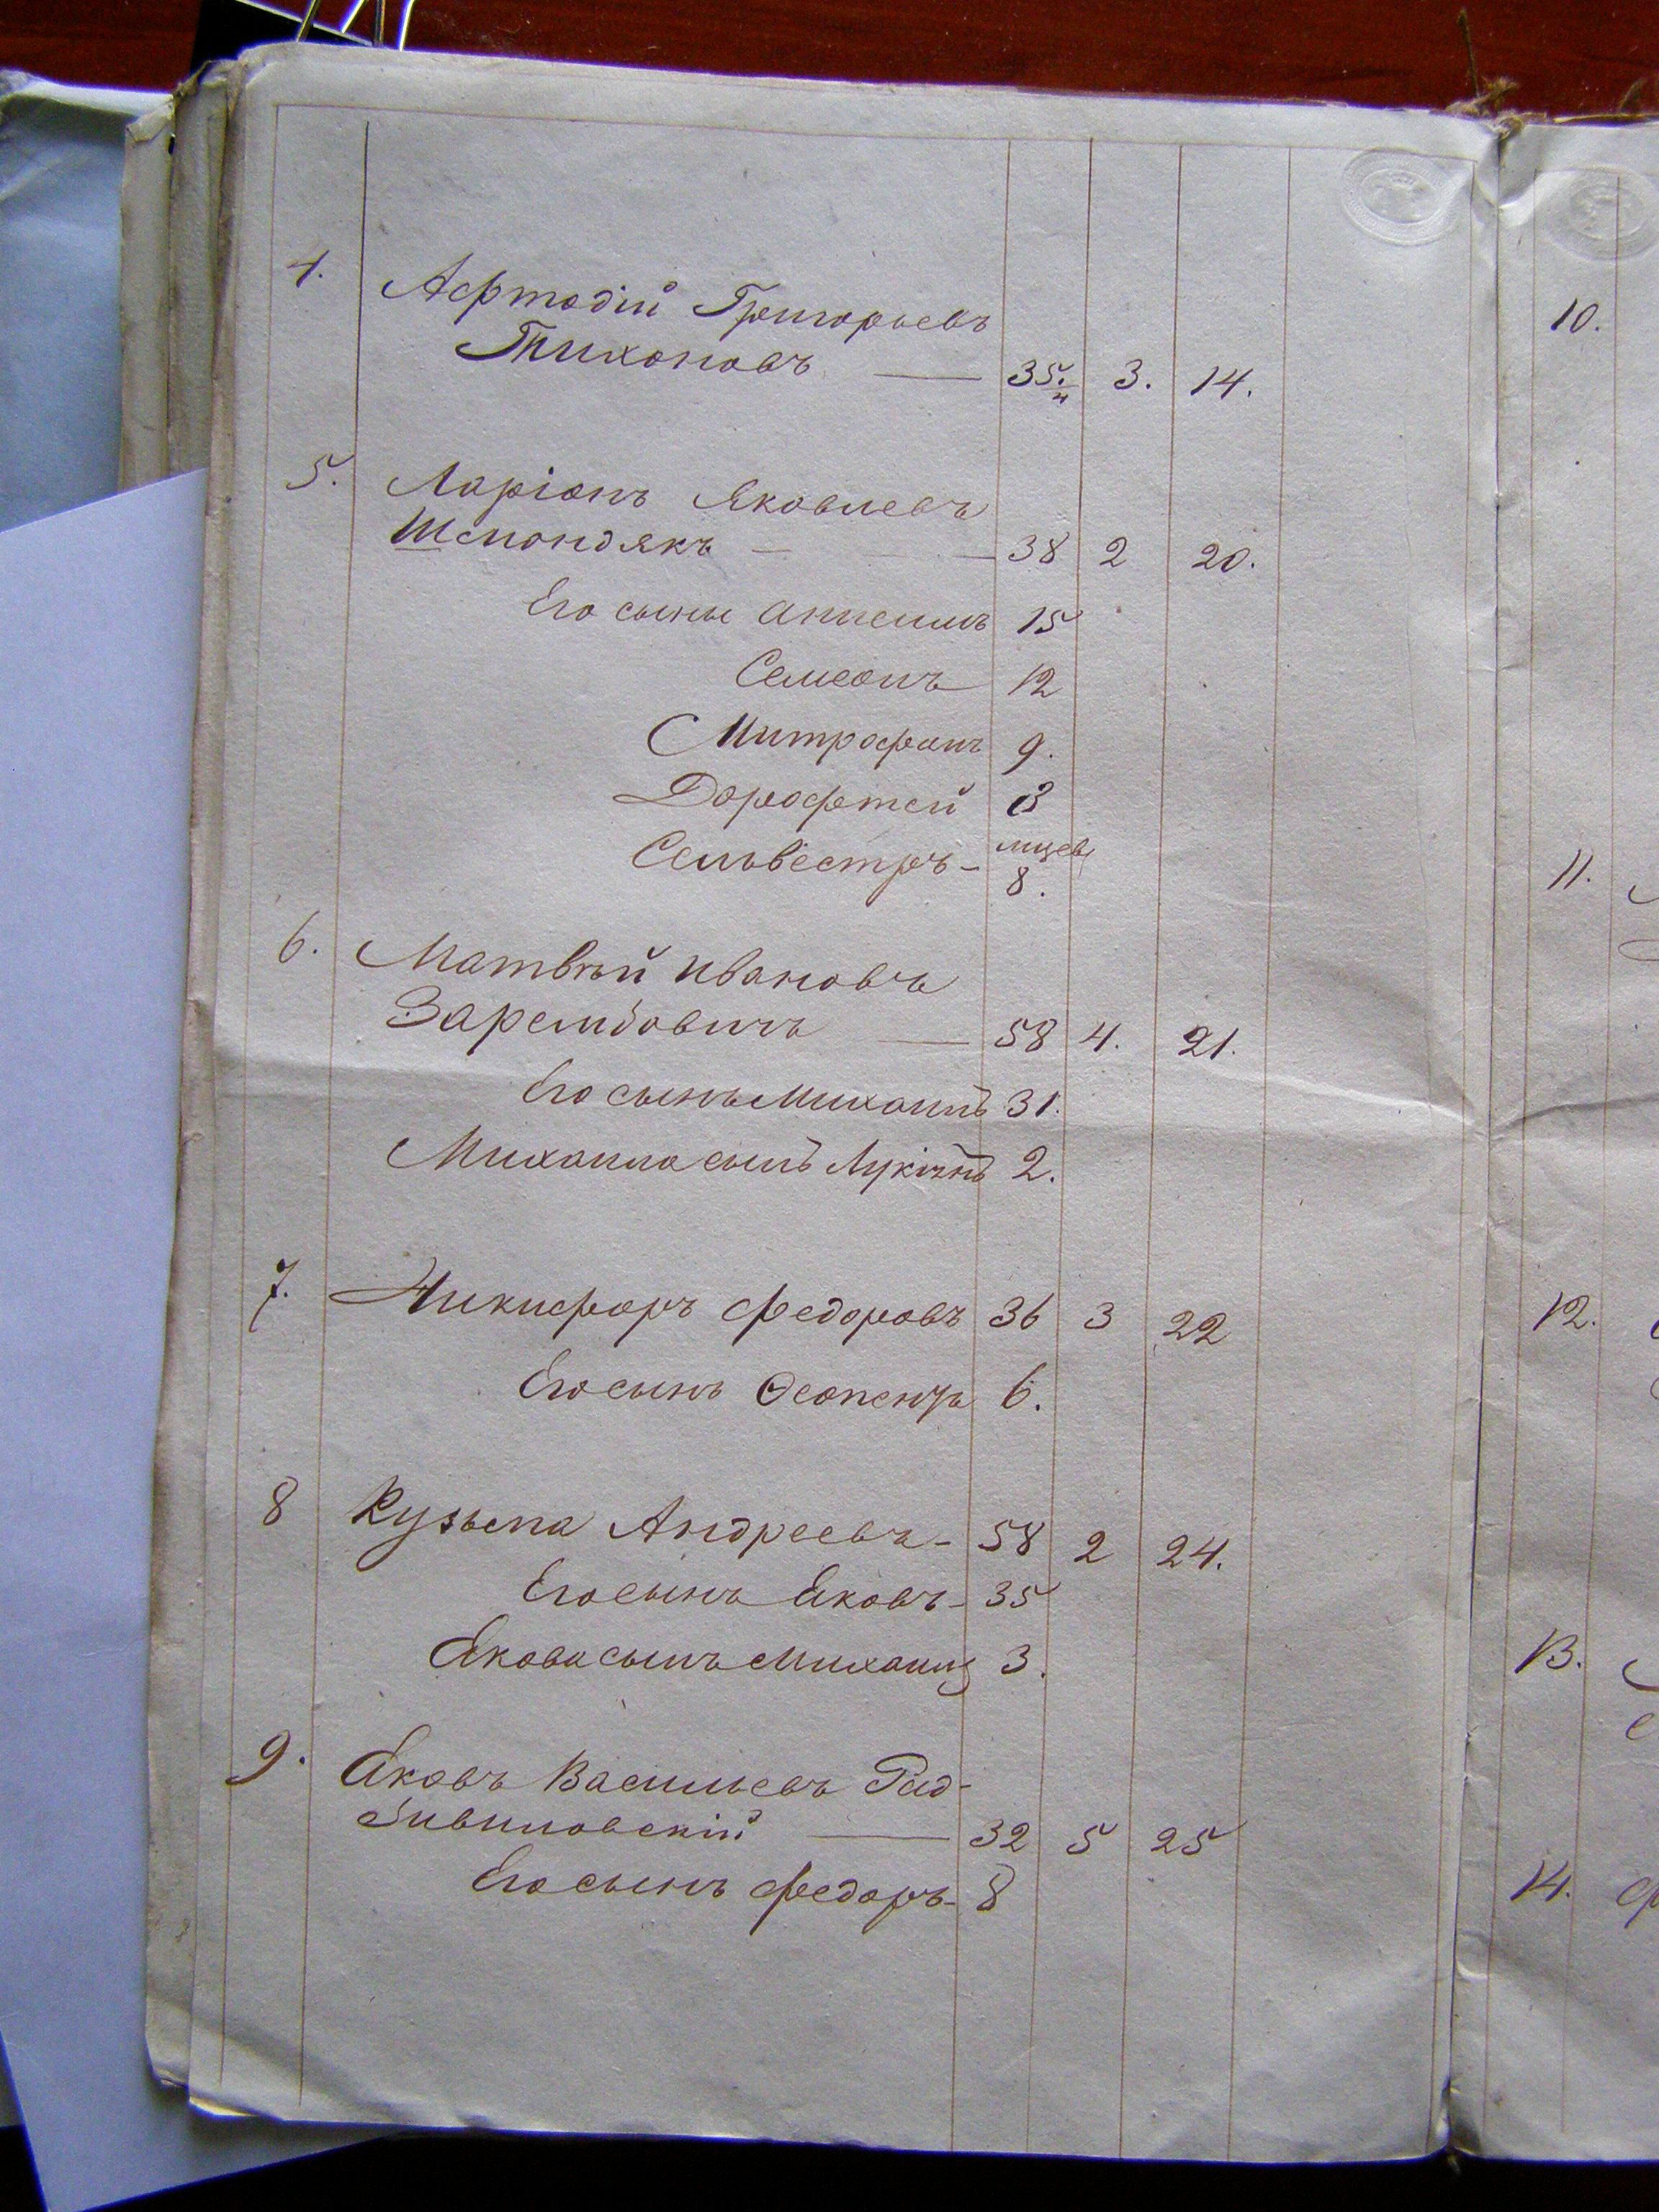 4. Афтодій Григорьевъ
Тихоновъ — 35. 3. 14.
5. Ларіонъ Яковлевъ
Шмондякъ — 38 2 20.
Его сыны 15
Семеонъ 12
Митрофанъ 9.
Дорофтей 3
Сельвестръ - мцев
8.
6. Матвѣй Ивановъ
Зарембовичъ — 58 4. 21.
Его сынъ Михаилъ 31.
Михаила сынъ 2.
7. Никифоръ Федоровъ 36 3 22
Его сынъ Ѳеопентъ 6.
8 Кузьма Андреевъ - 58 2 24.
Его сынъ Яковъ - 35
Якова сынъ Михаилъ 3.
9. Яковъ Васильевъ Рад-
зивиловскій — 32 5 25
Его сынъ Федоръ - 8
10.
11.
12.
13.
14.